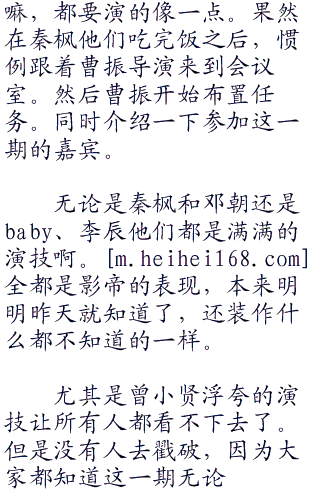 嘛，都要演的像一点。果然
在秦枫他们吃完饭之后，惯
例跟着曹振导演来到会议
室。然后曹振开始布置任
务。同时介绍一下参加这一
期的嘉宾。
无论是秦枫和邓朝还是
baby、李辰他们都是满满的
演技啊。[m.heihei168.com]
全都是影帝的表现，本来明
明昨天就知道了，还装作什
么都不知道的一样。
尤其是曾小贤浮夸的演
技让所有人都看不下去了。
但是没有人去戳破，因为大
家都知道这一期无论